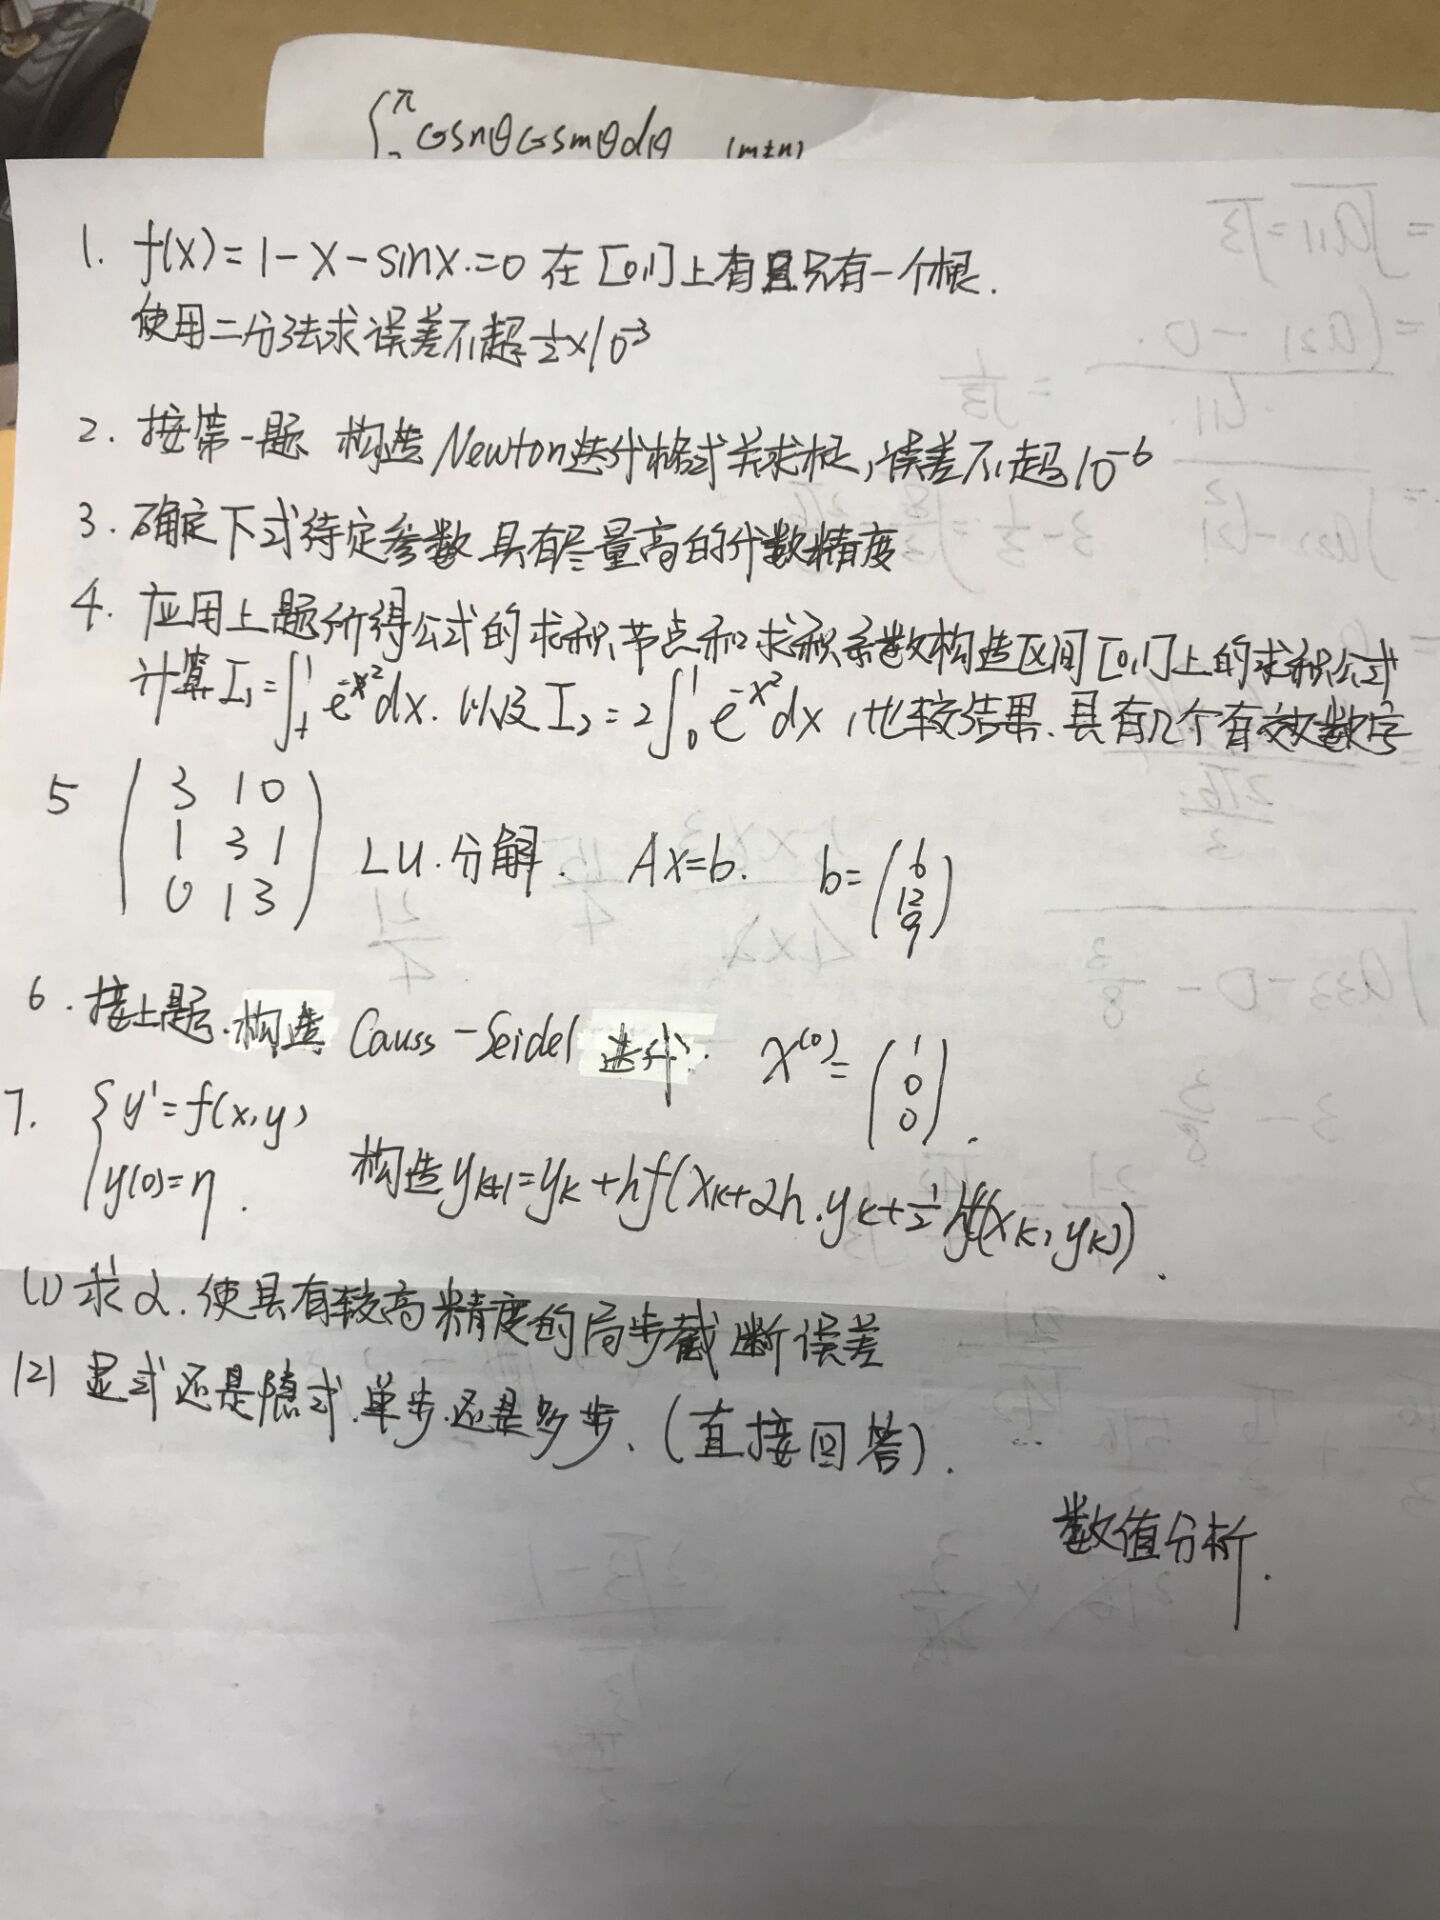 ∫ π cosnθcosmθdθ (m±n)
1. f(x)=1-x-sinx.=0 在[0,1]上有且只有一个根.
使用二分法求误差不超½×10⁻³
2. 接第一题 构造Newton迭代格式并求根,误差不超10⁻⁶
3. 确定下式待定参数 具有尽量高的代数精度
4. 应用上题所得公式的求积节点和求积系数构造区间[0,1]上的求积公式
计算I₁=∫₋₁¹ e^{-x²}dx. 以及I₂=2∫₀¹ e^{-x²}dx,比较结果.具有几个有效数字
5 (3 1 0
1 3 1
0 1 3) LU.分解. Ax=b. b=(6
12
9)
6. 接上题.构造 Gauss-Seidel 迭代. x⁽⁰⁾=(1
0
0).
7. {y'=f(x,y)
y(0)=η. 构造yₖ₊₁=yₖ+hf(xₖ+αh.yₖ+½hf(xₖ,yₖ)).
(1)求α.使具有较高精度的局步截断误差
(2)显式还是隐式.单步.还是多步、(直接回答).
数值分析.